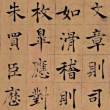 文章則司
如滑稽則
枚皋應對
朱買臣歷